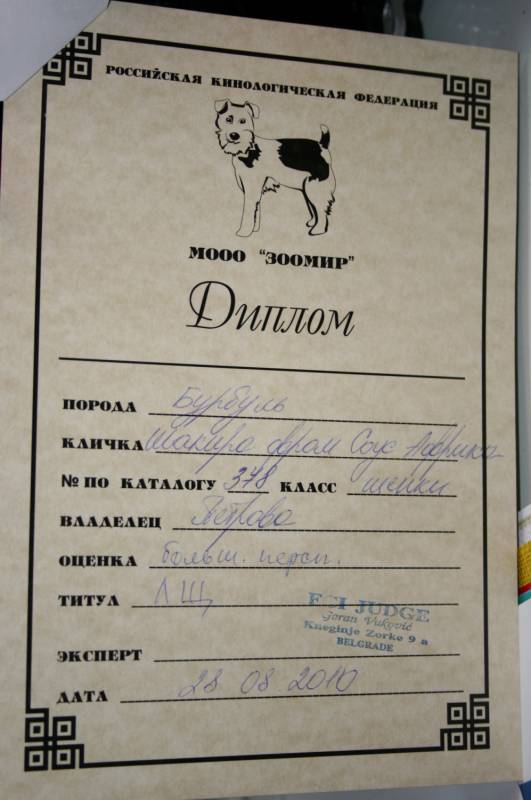 РОССИЙСКАЯ КИНОЛОГИЧЕСКАЯ ФЕДЕРАЦИЯ
МООО "ЗООМИР"
Диплом
ПОРОДА Бурбуль
КЛИЧКА Шакира фром Соус Африка
№ ПО КАТАЛОГУ 378 КЛАСС щенки
ВЛАДЕЛЕЦ Петрова
ОЦЕНКА больш. персп.
ТИТУЛ ЛЩ
FCI JUDGE
Goran Vuković
Kneginje Zorke 9 a
BELGRADE
ЭКСПЕРТ
ДАТА 28 08 2010